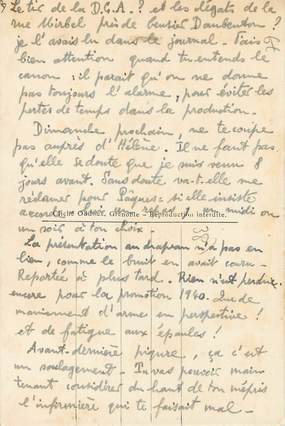 Le tir de la D.C.A. ? et les dégats de la
rue Mirbel près de Censier Daubenton ?
je l'avais lu dans le journal. Fais
bien attention quand tu entends le
canon : il parait qu'on ne donne
pas toujours l'alarme, pour éviter les
pertes de temps dans la production.
Dimanche prochain, ne te coupe
pas auprès d'Hélène. Il ne faut pas
qu'elle se doute que je suis venu 8
jours avant. Sans doute va-t-elle me
réclamer pour Paques : si elle insiste
accorde lui un midi ou
un soir à ton choix.
Cliché Oddoux, Grenoble - Reproduction interdite.
La présentation au drapeau n'a pas eu
lieu, comme le bruit en avait couru.
Reportée à plus tard. Rien n'est perdu
encore pour la promotion 1940. Que de
maniement d'arme en perspective !
et de fatigue aux épaules !
Avant-dernière piqure, ça c'est
un soulagement - Tu vas pouvoir main
tenant considérer du haut de ton mépris
l'infirmière qui te faisait mal -